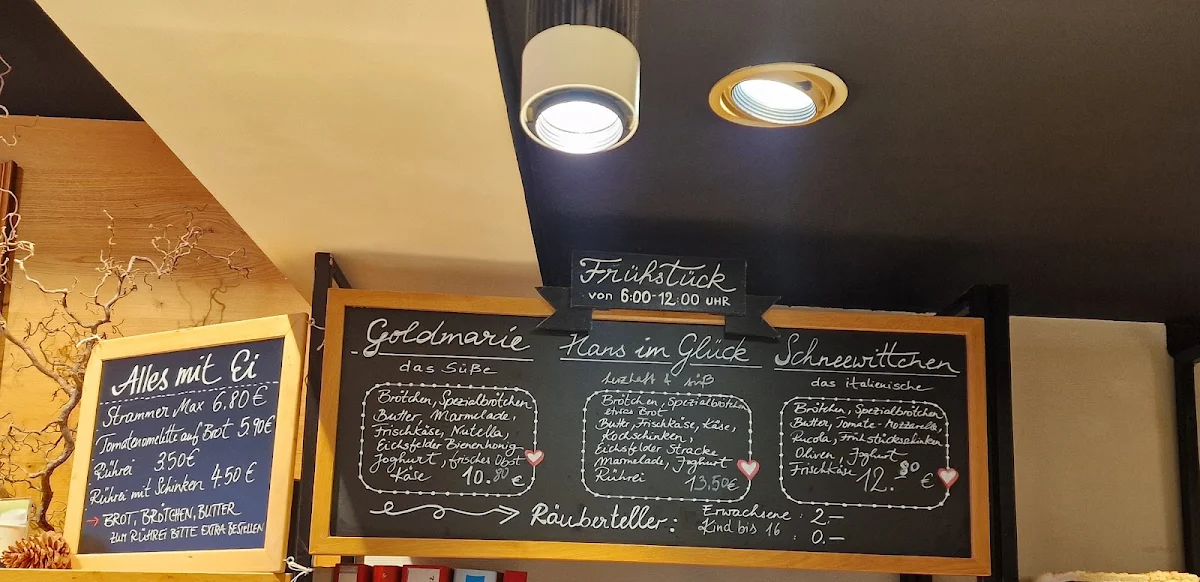 Alles mit Ei
Strammer Max 6.80 €
Tomatenomelette auf Brot 5.90€
Rührei 3.50€
Rührei mit Schinken 4.50 €
→ BROT, BRÖTCHEN, BUTTER
ZUM RÜHREI BITTE EXTRA BESTELLEN
Frühstück
von 6:00-12:00 UHR
Goldmarie
das Süße
Brötchen, Spezialbrötchen
Butter, Marmelade,
Frischkäse, Nutella,
Eichsfelder Bienenhonig
Joghurt, frisches Obst
Käse 10.80 €
Hans im Glück
herzhaft & süß
Brötchen, Spezialbrötchen
etwas Brot
Butter, Frischkäse, Käse,
Kochschinken,
Eichsfelder Stracke
Marmelade, Joghurt
Rührei 13.50€
Schneewittchen
das italienische
Brötchen, Spezialbrötchen
Butter, Tomate-Mozzarella,
Rucola, Frühstücksschinken
Oliven, Joghurt
Frischkäse 12.80 €
Räuberteller: Erwachsene : 2.—
Kind bis 16 : 0.—